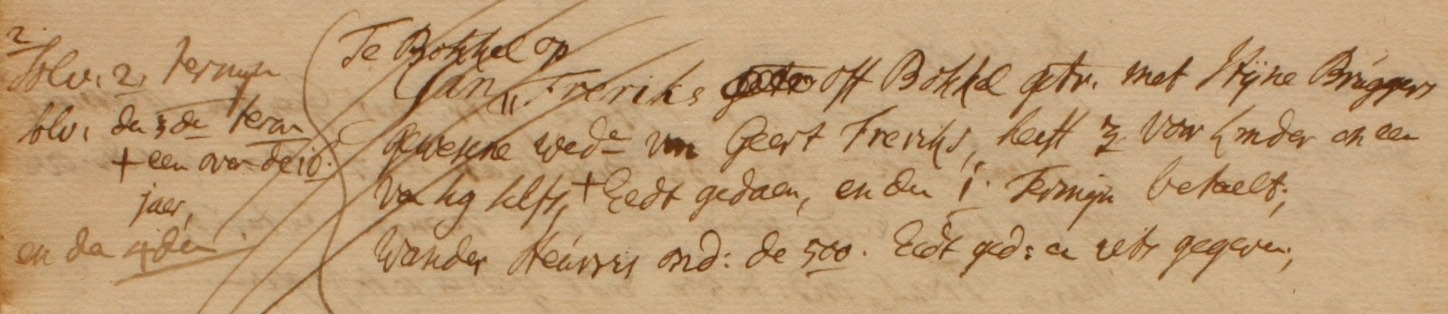 2
solv. 2. termijn
solv. de 3de term
+ een over de 10.
jaer,
en de 4den
Te Bokkel op
Jan Freriks off Bokkel getr. met Stijne Bruggers
gewesene wede van Geert Freriks, heeft 3 voor kinder en een
vor hg selfs, + Eedt gedaen, en den 1. Termijn betaelt;
Wander Heinen ond: de 500. Eedt ged: en iets gegeven;